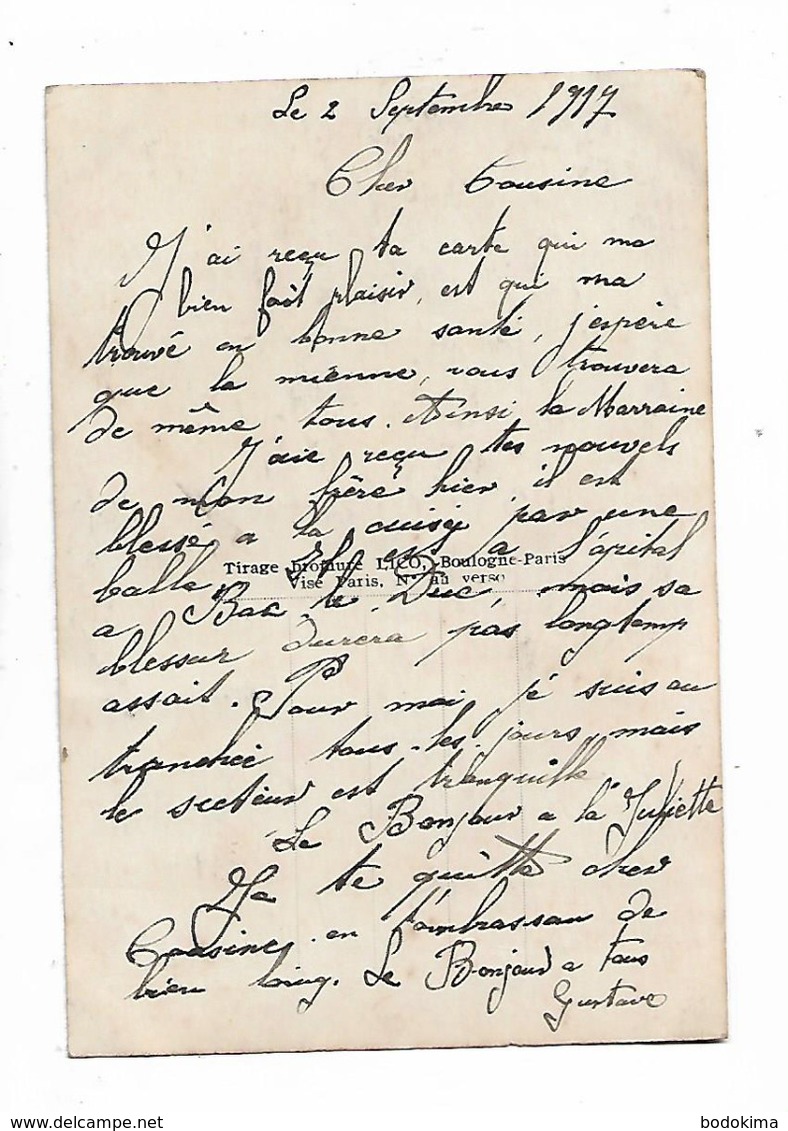 Le 2 Septembre 1917
Cher Cousine
J'ai reçu ta carte qui ma
bien fait plaisir, est qui ma
trouvé en bonne santé, j'espère
que la miénne, vous trouvera
de même tous. Ainsi la Marraine
J'aie reçu tes nouvels
de mon frère hier, il est
blessé a la cuise par une
balle, Il est a l'ôpital
Tirage bromure LICO, Boulogne-Paris
Visé Paris, N° au verso
a Bar le Duc, mais sa
blessur durera pas longtemp
assait. Pour moi je suis au
tranchée tous les jours, mais
le secteur est tranquille
Le Bonjour a la Juliette
Je te quitte cher
Cousine, en t'ombrassan de
bien loing. Le Bonjour a tous
Gustave
bodokima